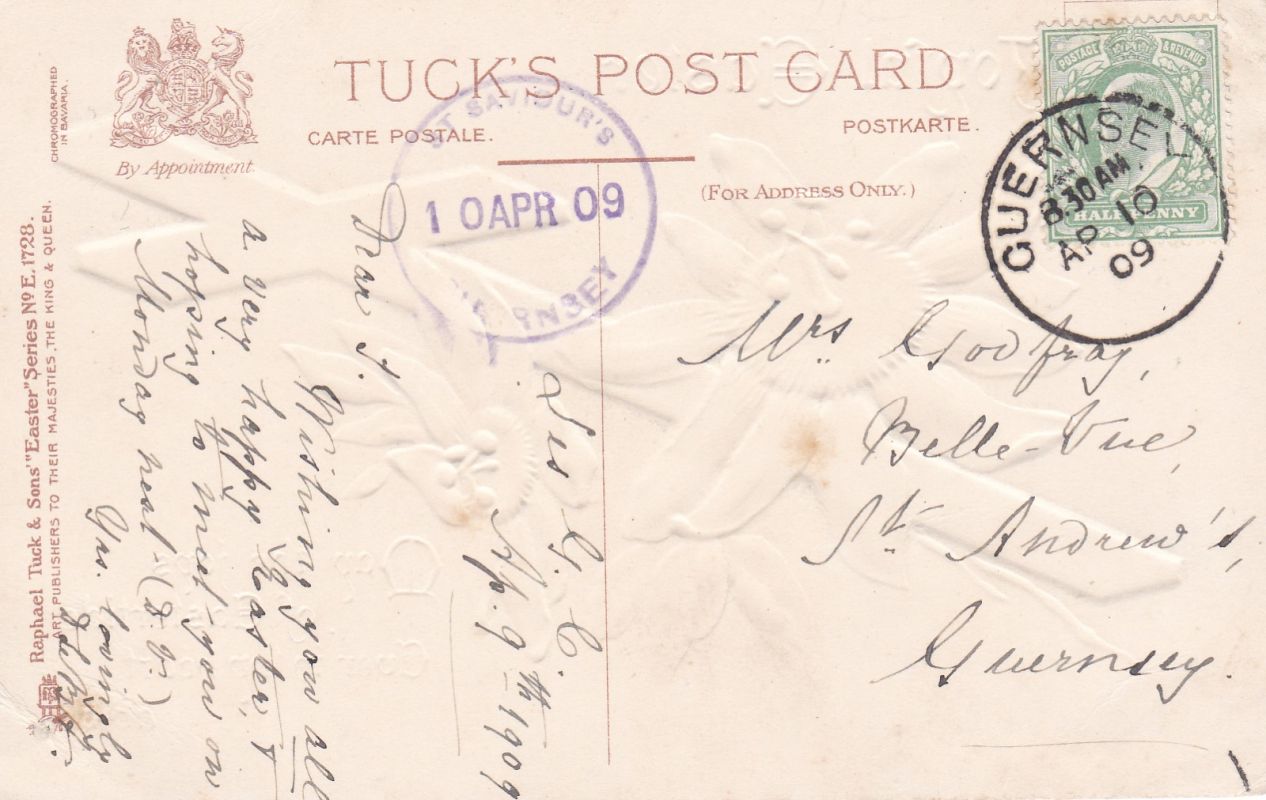 TUCK'S POST CARD
CARTE POSTALE.
POSTKARTE.
(FOR ADDRESS ONLY.)
By Appointment.
CHROMOGRAPHED
IN BAVARIA.
Raphael Tuck & Sons' "Easter" Series Nº E. 1728.
ART PUBLISHERS TO THEIR MAJESTIES THE KING & QUEEN.
ST SAVIOUR'S
10 APR 09
GUERNSEY
POSTAGE & REVENUE
HALFPENNY
GUERNSEY
8.30 AM
AP 10
09
Ap. 9th 1909
Wishing you all
a very happy Easter, &
hoping to meet you on
Monday next - (D.V.)
Yrs. lovingly
Mrs Godfray,
Belle-Vue,
St. Andrew's,
Guernsey.